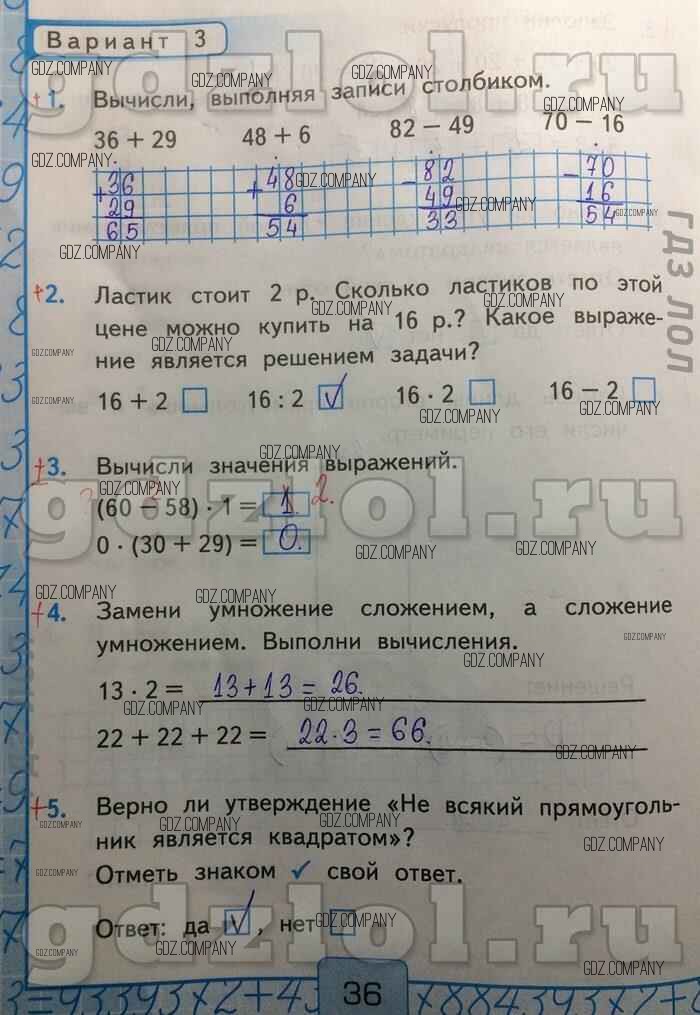 Вариант 3
+1. Вычисли, выполняя записи столбиком.
36 + 29 48 + 6 82 − 49 70 − 16
+36 +48 −82 −70
29 6 49 16
65 54 33 54
+2. Ластик стоит 2 р. Сколько ластиков по этой
цене можно купить на 16 р.? Какое выраже-
ние является решением задачи?
16 + 2 16 : 2 ✓ 16 · 2 16 − 2
±3. Вычисли значения выражений.
2
(60 − 58) · 1 = 1. 2.
0 · (30 + 29) = 0.
+4. Замени умножение сложением, а сложение
умножением. Выполни вычисления.
13 · 2 = 13+13 = 26.
22 + 22 + 22 = 22·3 = 66.
+5. Верно ли утверждение «Не всякий прямоуголь-
ник является квадратом»?
Отметь знаком ✓ свой ответ.
Ответ: да ✓, нет
36
gdzlol.ru
gdzlol.ru
gdzlol.ru
гдз лол
GDZ.COMPANY